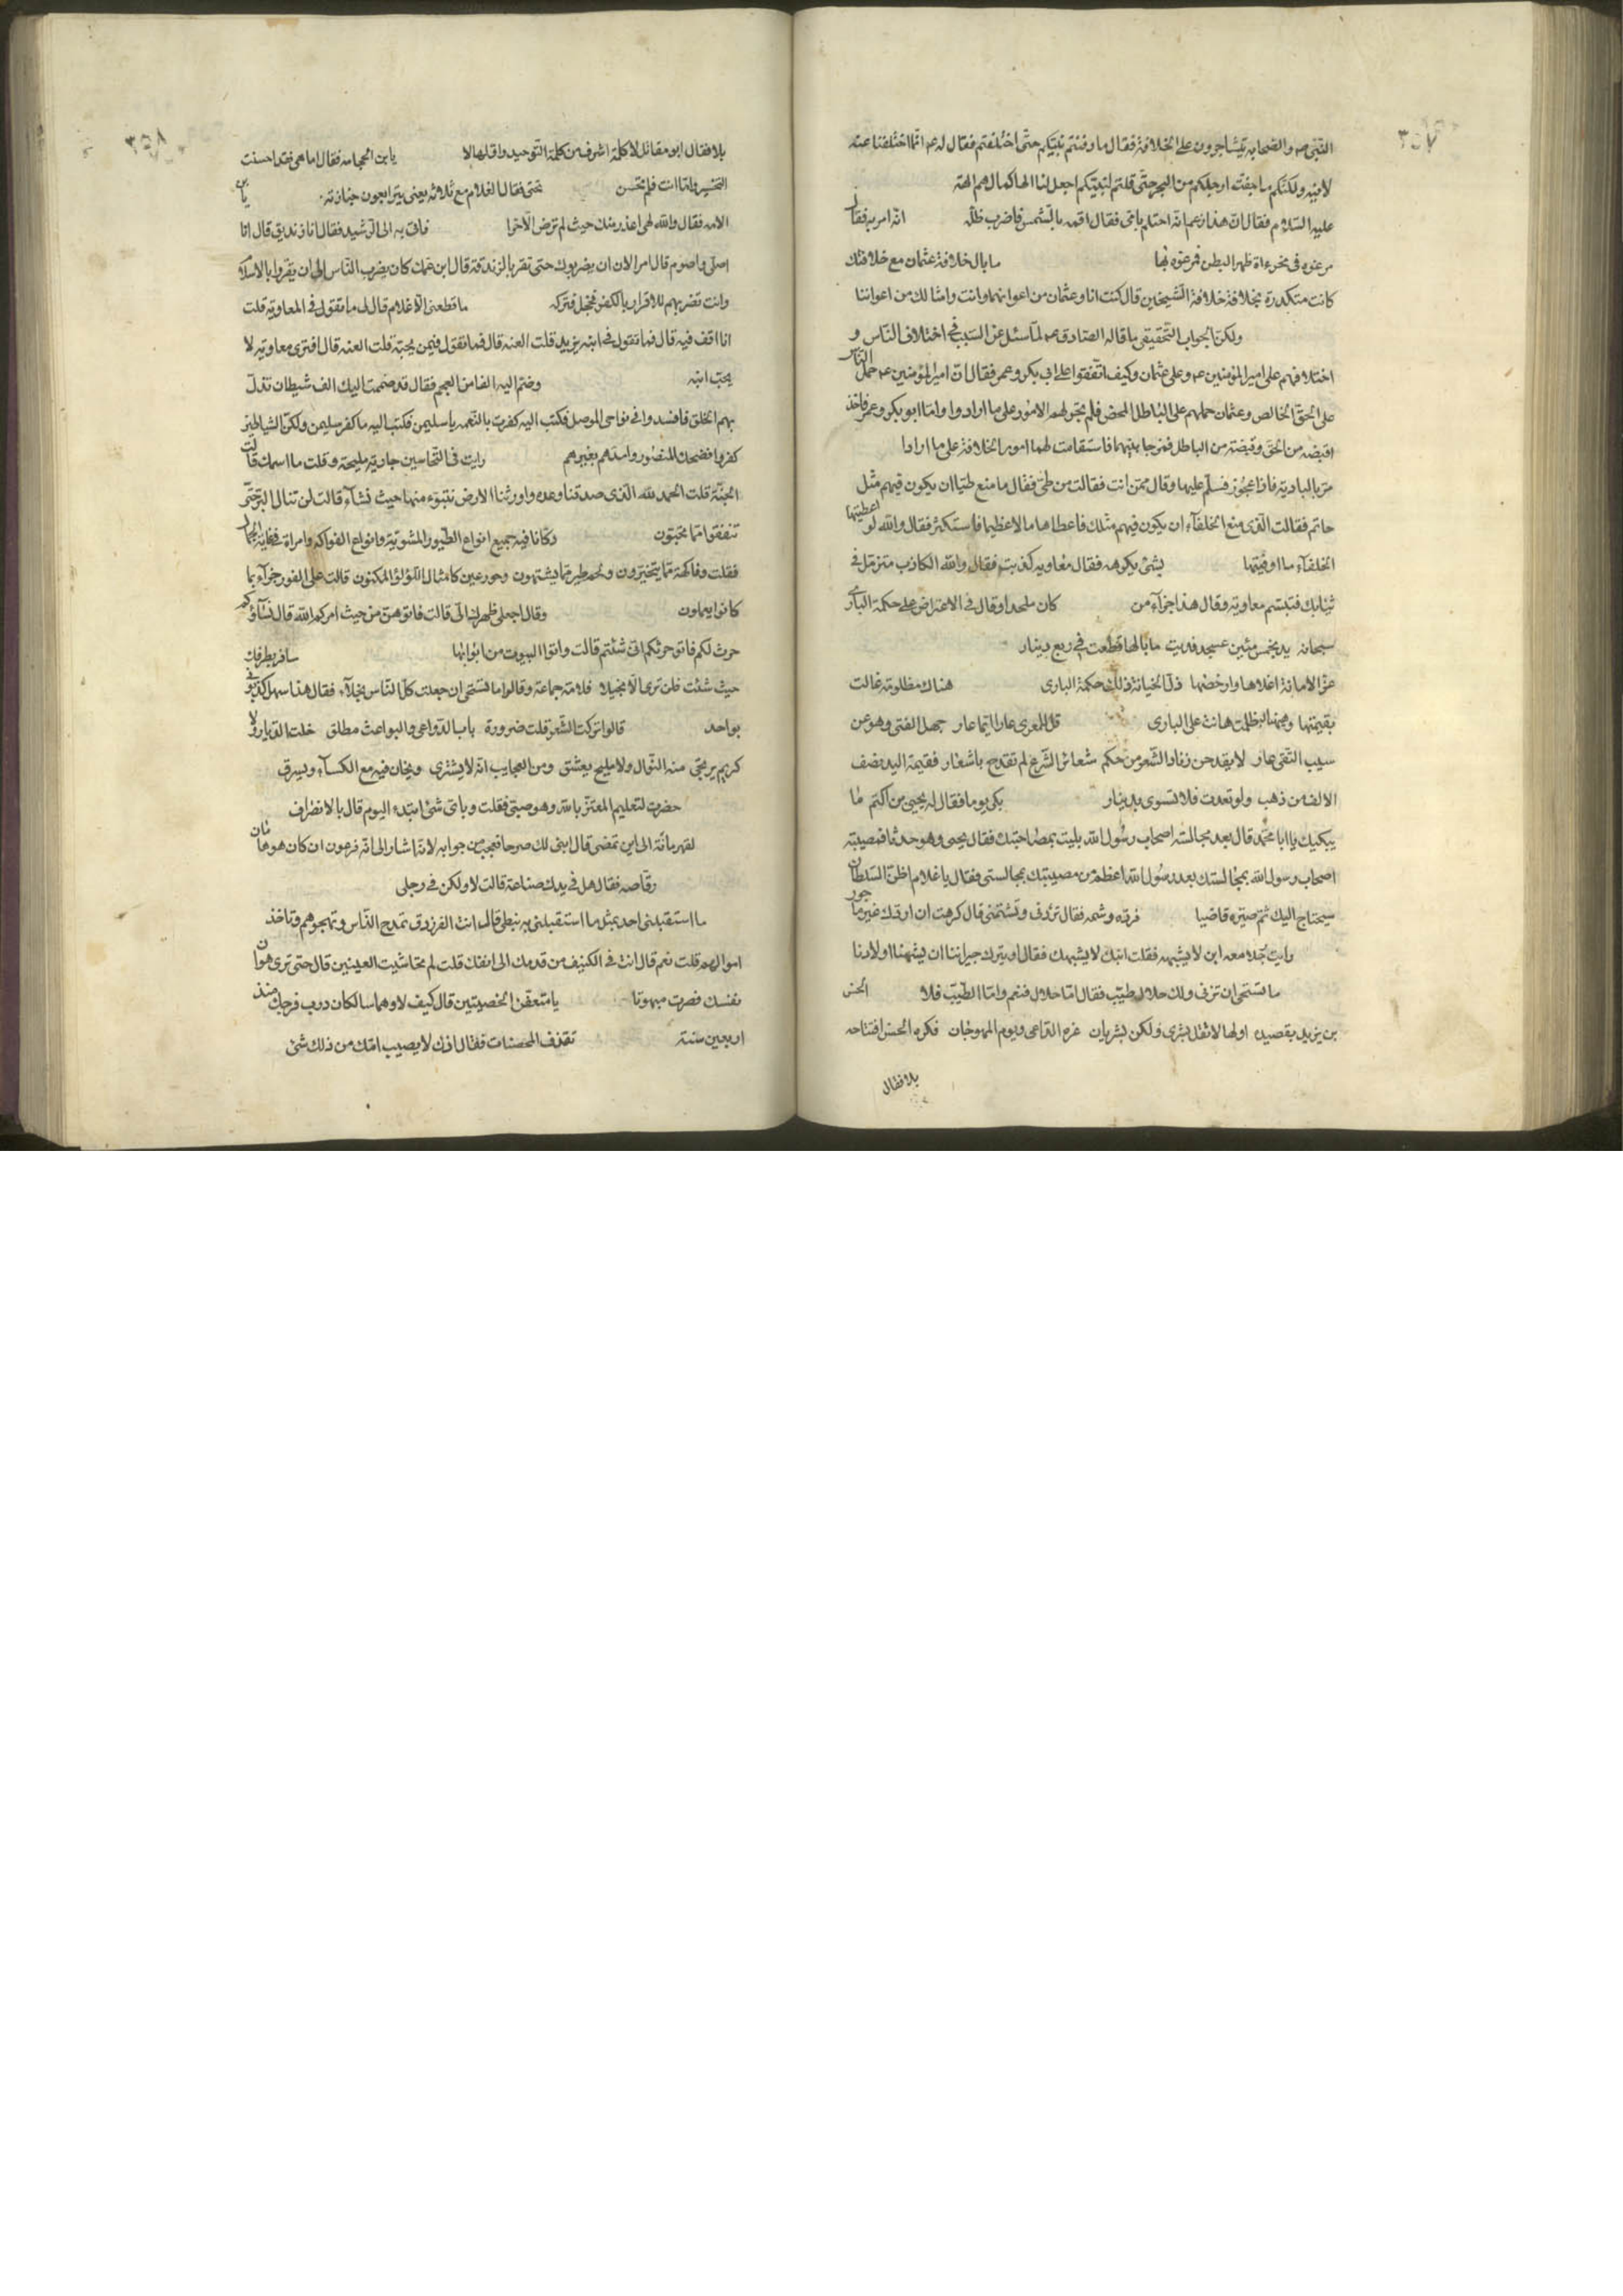 ٣٥٧
النبي صه والصحابه يتشاجرون على الخلافة فقال ما دفنتم نبيكم حتى اختلفتم فقال له عم انما اختلفنا عنه
لا فيه ولكنكم ما جفت ارجلكم من البحر حتى قلتم لنبيكم اجعل لنا الها كما لهم الهة
عليه السلام فقال ان هذا زعم انه احتلم بامي فقال اقمه بالشمس فاضرب ظله انه امر به فقال
مرغوه في مخرءاة ظهرا لبطن فمرغوه بها ما بال خلافة عثمان مع خلافتك
كانت متكدرة بخلافة خلافة الشيخين قال كنت انا وعثمان من اعوانهما وانت وامثالك من اعواننا
ولكن الجواب التحقيقي ما قاله الصادق عم لما سئل عن السبب في اختلاف الناس و
اختلافهم على امير المؤمنين عم وعلى عثمان وكيف اتفقوا على ابي بكر وعمر فقال ان امير المؤمنين عم حمل الناس
على الحق الخالص وعثمان حملهم على الباطل المحض فلم يتم لهم الامور على ما ارادوا واما ابو بكر وعمر فاخذ
اقبضه من الحق وقبضة من الباطل فمزجا بينهما فاستقامت لهما امور الخلافة على ما ارادا
مر بالبادية فاذا عجوز فسلم عليها وقال ممن انت فقالت من طي فقال ما منع طيا ان يكون فيهم مثل
حاتم فقالت الذي منع الخلفاء ان يكون فيهم مثلك فاعطاها مالا عظيما فاستكثر فقال والله لو اعطيتها
الخلفاء ما اوفيتها بشئ يكرهه فقال معاويه كذبت فقال والله الكاذب متزمل في
ثيابك فتبسم معاوية وقال هذا جزاء من كان ملحدا وقال في الاعتراض على حكمة الباري
سبحانه يد بخمس مئين عسجد فديت ما بالها قطعت في ربع دينار
عز الامانة اغلاها وارخصها ذل الخيانة فذلك حكمة الباري هناك مظلومة غالت
بقيمتها وههنا ظلمت هانت على الباري قل للمعري عار ايما عار جهل الفتى وهو عن
سيب التقى عار لا يقدحن زناد الشعر من حكم شعائر الشرع لم تقدح باشعار فقيمة اليد نصف
الالف من ذهب ولو تعدت فلا تسوى بدينار بكى يوما فقال له يحيى بن اكثم ما
يبكيك يا ابا محمد قال بعد مجالسته اصحاب رسول الله بليت بمصاحبتك فقال يحيى وهو حدث فمصيبة
اصحاب رسول الله بمجالستك بعد رسول الله اعظم من مصيبتك بمجالستي فقال يا غلام اظن السلطان
سيحتاج اليك ثم صيره قاضيا فرده وشمه فقال تردني وتشتمني قال كرهت ان اردك غير ما جور
رايت رجلا معه ابن لا يشبهه فقلت ابنك لا يشبهك فقال او يترك جيراننا ان يشبهنا اولادنا
ما تستحى ان تزني ولك حلال طيب فقال اما حلال فنعم واما الطيب فلا الحسن
بن يزيد بقصيده اولها لا تقل بشرى ولكن بشريان غرة الداعي ويوم المهرجان فكره الحسن افتتاحه
بلا فقال
٣٥٨
بلا فقال ابو مقاتل لا كلمة اشرف من كلمة التوحيد واولها لا يا بن الحجامه فقال اما هي فقد احسنت
التخير واما انت فلم تحسن تحتى فقال الغلام مع ثلاثه يعني يترابعون جنازته يا بن
الامه فقال والله لهي اعذر منك حيث لم ترض الا حرا فاتى به الى الرشيد فقال انا زنديق قال انا
اصلي واصوم قال امر الان ان يضربوك حتى تقر بالزندقة قال ابن عمك كان يضرب الناس الى ان يقروا بالاسلام
وانت تضربهم للاقرار بالكفر فخجل فتركه ما قطعني الا غلام قال لي ما تقول في المعاوية قلت
انا اقف فيه قال فما تقول في ابنه يزيد قلت العنه قال فما تقول فيمن يحبه قلت العنه قال افترى معاويه لا
يحب ابنه وضم اليه الفا من العجم فقال قد ضممت اليك الف شيطان تذل
بهم الخلق فافسدوا في نواحي الموصل فكتب اليه كفرت بالنعمه يا سليمن فكتب اليه ما كفر سليمن ولكن الشياطين
كفروا فضحك المنصور وامدهم بغيرهم رايت في النخاسين جارية مليحة وقلت ما اسمك قالت
الجنة قلت الحمد لله الذي صدقنا وعده واورثنا الارض نتبوء منها حيث نشاء قالت لن تنالوا البر حتى
تنفقوا مما تحبون وكانا فيه جميع انواع الطيور المشوية وانواع الفواكه وامراة في غاية الجمال
فقلت وفاكهة مما يتخيرون ولحم طير مما يشتهون وحور عين كامثال اللؤلؤ المكنون قالت على الفور جزاء بما
كانوا يعملون وقال اجعلي ظهرك الي قالت فاتوهن من حيث امركم الله قال نساؤكم
حرث لكم فاتوا حرثكم انى شئتم قالت واتوا البيوت من ابوابها سافر بطرفك
حيث شئت فلن ترى الا بخيلا فلامته جماعة وقالوا ما تستحى ان جعلت كل الناس بخلاء فقال هذا سهل كذبوني
بواحد قالوا تركت الشعر قلت ضرورة باب الدواعي والبواعث مطلق خلت الديار فلا
كريم يرتجى منه النوال ولا مليح يعشق ومن العجايب انه لا يشترى ويخان فيه مع الكساد ويسرق
حضرت لتعليم المعتز بالله وهو صبي فقلت وباي شئ ابتدء اليوم قال بالانصراف
لقهرمانة الى اين تمضي قال ابني لك صرحا فعجبت من جوابه لانه اشار الى انه فرعون ان كان هو هامان
رقاصه فقال هل في يدك صناعة قالت لا ولكن في رجلي
ما استقبلني احد بمثل ما استقبلني به نبطي قال انت الفرزدق تمدح الناس وتهجوهم وتاخذ
اموالهم قلت نعم قال انت في الكنيف من قدمك الى انفك قلت لم تحاشيت العينين قال حتى ترى هوان
نفسك فصرت مبهوتا يا متعفن الخصيتين قال كيف لا وهما سالكان درب فرجك منذ
اربعين سنة تقذف المحصنات فقال اذن لا يصيب امك من ذلك شئ